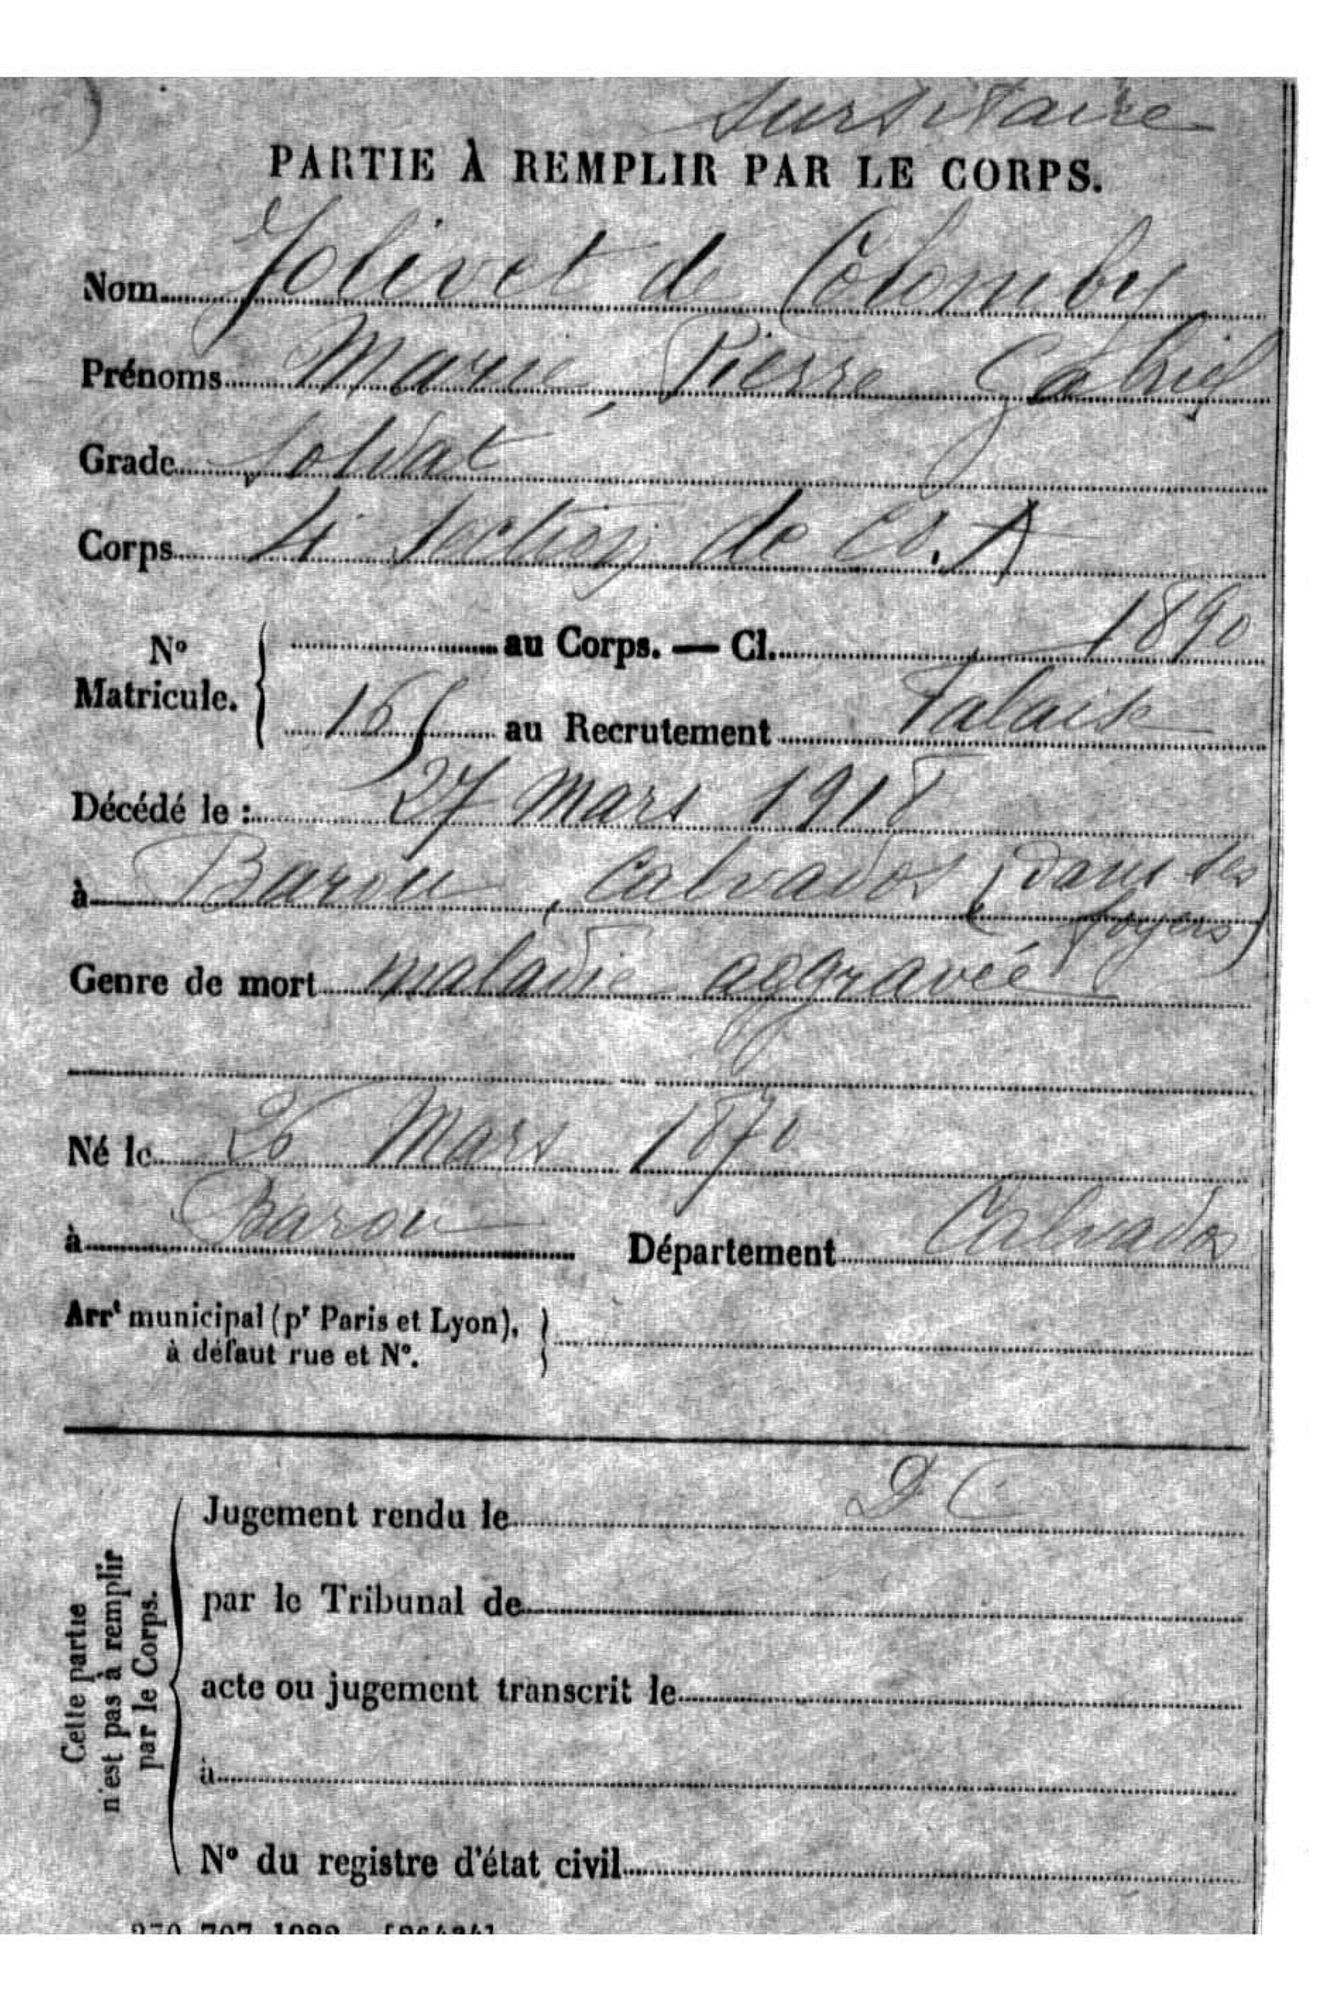 Sursitaire
PARTIE À REMPLIR PAR LE CORPS.
Nom Jolivet de Colomby
Prénoms Marie, Pierre Gabriel
Grade Soldat
Corps 4e Section de C.O.A
No
Matricule.
au Corps. — Cl. 1890
165 au Recrutement Falaise
Décédé le : 27 Mars 1918
à Barou, Calvados (dans ses
foyers)
Genre de mort maladie aggravée
Né le 26 Mars 1870
à Barou Département Calvados
Arrt municipal (pr Paris et Lyon),
à défaut rue et No.
Cette partie
n'est pas à remplir
par le Corps.
Jugement rendu le D C
par le Tribunal de
acte ou jugement transcrit le
à
No du registre d'état civil